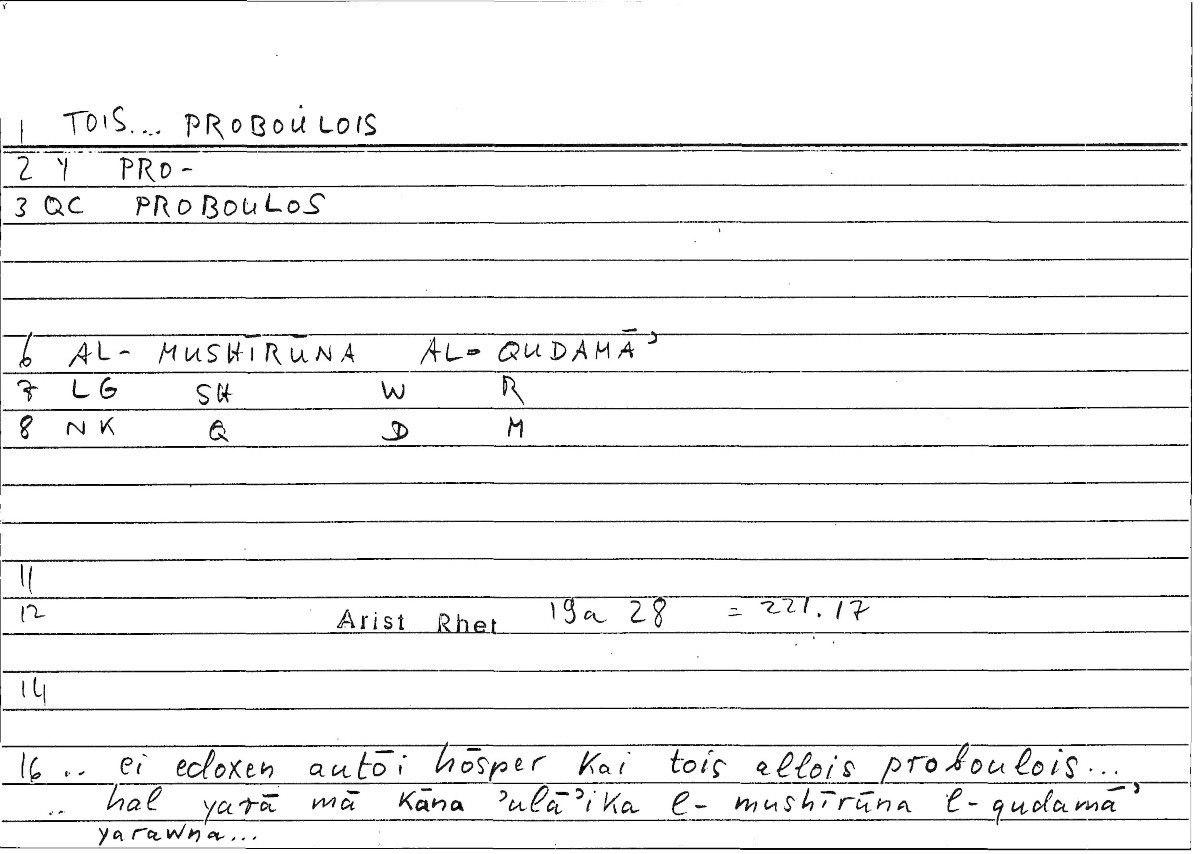 1 TOIS.... PROBOÚLOIS
2 Y PRO-
3 QC PROBOULOS
6 AL- MUSHĪRŪNA AL- QUDAMĀʾ
7 LG SH W R
8 NK Q D M
11
12 Arist Rhet 19a 28 = 221.17
14
16 .. ei edoxen autōi hōsper kai tois allois proboulois...
.. hal yarā mā kāna ʾulāʾika l- mushīrūna l- qudamāʾ
yarawna...